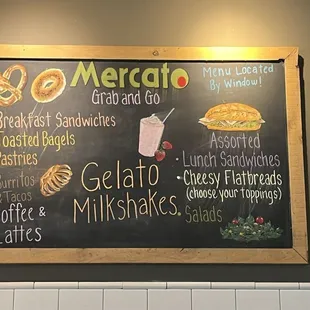 Mercato
Grab and Go
Menu Located
By Window!
Breakfast Sandwiches
Toasted Bagels
Pastries
Burritos
& Tacos
Coffee &
Lattes
Gelato
Milkshakes
Assorted
Lunch Sandwiches
• Cheesy Flatbreads
(choose your toppings)
• Salads